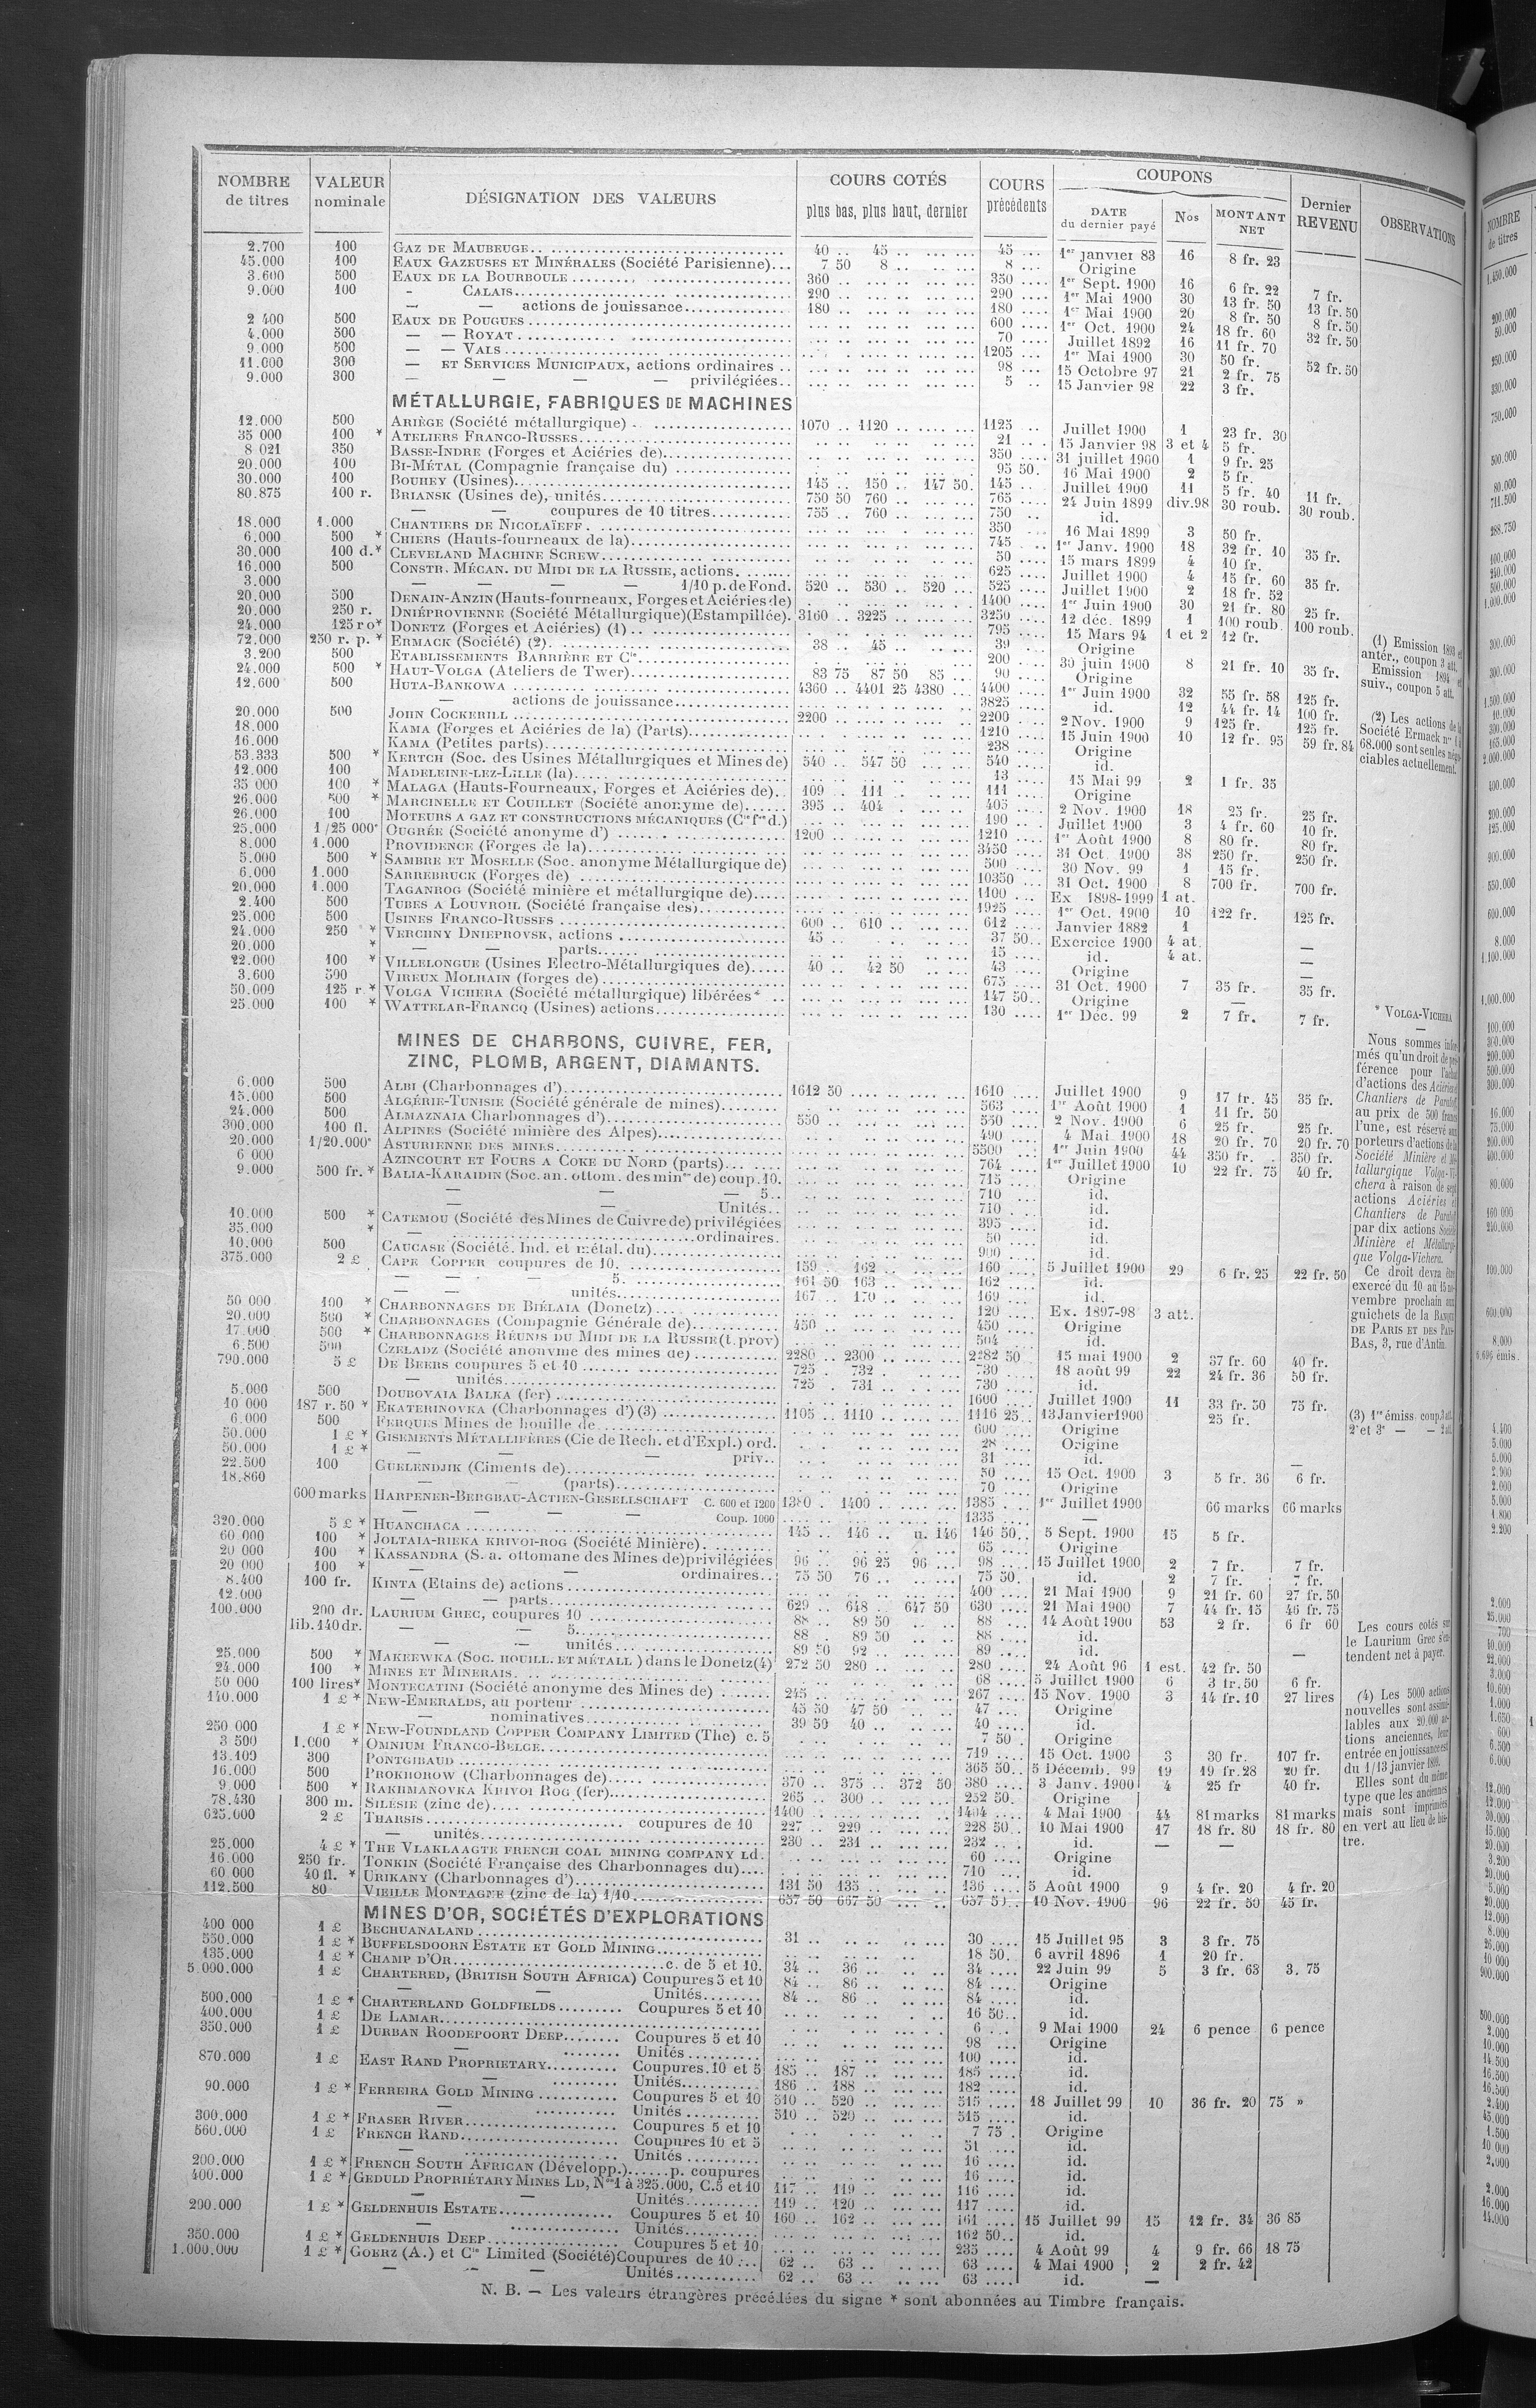 NOMBRE de titres | VALEUR nominale | DÉSIGNATION DES VALEURS | COURS COTÉS plus bas, plus haut, dernier | COURS précédents | COUPONS DATE du dernier payé | Nos | MONTANT NET | Dernier REVENU | OBSERVATIONS
2.700 100 GAZ DE MAUBEUGE 40 .. 45 .. 45 1er janvier 83 16 8 fr. 23
45.000 100 EAUX GAZEUSES ET MINÉRALES (Société Parisienne) 7 50 8 .. 8 Origine
3.600 500 EAUX DE LA BOURBOULE 360 .. 350 1er Sept. 1900 16 6 fr. 22 7 fr.
9.000 100 - CALAIS 290 .. 290 1er Mai 1900 30 13 fr. 50 13 fr. 50
— — actions de jouissance 180 .. 180 1er Mai 1900 20 8 fr. 50 8 fr. 50
2 400 500 EAUX DE POUGUES 600 1er Oct. 1900 24 18 fr. 60 32 fr. 50
4.000 500 — — ROYAT 70 Juillet 1892 16 11 fr. 70
9.000 500 — — VALS 1205 1er Mai 1900 30 50 fr. 52 fr. 50
11.000 300 — ET SERVICES MUNICIPAUX, actions ordinaires 98 15 Octobre 97 21 2 fr. 75
9.000 300 — — — — privilégiées 5 15 Janvier 98 22 3 fr.
MÉTALLURGIE, FABRIQUES DE MACHINES
12.000 500 ARIÈGE (Société métallurgique) 1070 .. 1120 1125 Juillet 1900 1 23 fr. 30
35 000 100 * ATELIERS FRANCO-RUSSES 21 15 Janvier 98 3 et 4 5 fr.
8 021 350 BASSE-INDRE (Forges et Aciéries de) 350 31 juillet 1900 1 9 fr. 25
20.000 100 BI-MÉTAL (Compagnie française du) 95 50 16 Mai 1900 2 5 fr.
30.000 100 BOUHEY (Usines) 145 .. 150 .. 147 50 145 Juillet 1900 11 5 fr. 40 11 fr.
80.875 100 r. BRIANSK (Usines de), unités 750 50 760 765 24 Juin 1899 div.98 30 roub. 30 roub.
— — coupures de 10 titres 755 .. 760 750 id.
18.000 1.000 CHANTIERS DE NICOLAÏEFF 350 16 Mai 1899 3 50 fr.
6.000 500 * CHIERS (Hauts-fourneaux de la) 745 1er Janv. 1900 18 32 fr. 10 35 fr.
30.000 100 d.* CLEVELAND MACHINE SCREW 50 15 mars 1899 4 10 fr.
16.000 500 CONSTR. MÉCAN. DU MIDI DE LA RUSSIE, actions 625 Juillet 1900 4 15 fr. 60 35 fr.
3.000 — — — — 1/10 p. de Fond. 520 .. 530 .. 520 525 Juillet 1900 2 18 fr. 52
20.000 500 DENAIN-ANZIN (Hauts-fourneaux, Forges et Aciéries de) 1400 1er Juin 1900 30 21 fr. 80 25 fr.
20.000 250 r. DNIÉPROVIENNE (Société Métallurgique)(Estampillée) 3160 .. 3225 3250 12 déc. 1899 1 100 roub. 100 roub.
24.000 125 ro* DONETZ (Forges et Aciéries) (1) 795 15 Mars 94 1 et 2 12 fr.
72.000 250 r. p. * ERMACK (Société) (2) 38 .. 45 39 Origine
3.200 500 ETABLISSEMENTS BARRIÈRE ET Cie 200 30 juin 1900 8 21 fr. 10 35 fr.
24.000 500 * HAUT-VOLGA (Ateliers de Twer) 83 75 87 50 85 90 Origine
12.600 500 HUTA-BANKOWA 4360 .. 4401 25 4380 4400 1er Juin 1900 32 55 fr. 58 125 fr.
— actions de jouissance 3825 id. 12 44 fr. 14 100 fr.
20.000 500 JOHN COCKERILL 2200 2200 2 Nov. 1900 9 125 fr. 125 fr.
18.000 KAMA (Forges et Aciéries de la) (Parts) 1210 15 Juin 1900 10 12 fr. 95 59 fr. 84
16.000 KAMA (Petites parts) 238 Origine
53.333 500 * KERTCH (Soc. des Usines Métallurgiques et Mines de) 540 .. 547 50 540 id.
12.000 100 MADELEINE-LEZ-LILLE (la) 13 15 Mai 99 2 1 fr. 35
35 000 100 * MALAGA (Hauts-Fourneaux, Forges et Aciéries de) 109 .. 111 111 Origine
26.000 500 * MARCINELLE ET COUILLET (Société anonyme de) 395 .. 404 405 2 Nov. 1900 18 25 fr. 25 fr.
26.000 100 MOTEURS A GAZ ET CONSTRUCTIONS MÉCANIQUES (Cie fse d.) 190 Juillet 1900 3 4 fr. 60 10 fr.
25.000 1/25 000e OUGRÉE (Société anonyme d') 1200 1210 1er Août 1900 8 80 fr. 80 fr.
8.000 1.000 PROVIDENCE (Forges de la) 3450 31 Oct. 1900 38 250 fr. 250 fr.
5.000 500 * SAMBRE ET MOSELLE (Soc. anonyme Métallurgique de) 500 30 Nov. 99 1 15 fr.
6.000 1.000 SARREBRUCK (Forges de) 10350 31 Oct. 1900 8 700 fr. 700 fr.
20.000 1.000 TAGANROG (Société minière et métallurgique de) 1100 Ex 1898-1999 1 at.
2.400 500 TUBES A LOUVROIL (Société française des) 1925 1er Oct. 1900 10 122 fr. 125 fr.
25.000 500 USINES FRANCO-RUSSES 600 .. 610 612 Janvier 1882 1
24.000 250 * VERCHNY DNIEPROVSK, actions 45 37 50 Exercice 1900 4 at. —
20.000 * — — parts 15 id. 4 at. —
22.000 100 * VILLELONGUE (Usines Electro-Métallurgiques de) 40 .. 42 50 43 Origine —
3.600 500 VIREUX MOLHAIN (forges de) 675 31 Oct. 1900 7 35 fr. 35 fr.
50.000 125 r.* VOLGA VICHERA (Société métallurgique) libérées* 147 50 Origine —
25.000 100 * WATTELAR-FRANCQ (Usines) actions 130 1er Déc. 99 2 7 fr. 7 fr.
MINES DE CHARBONS, CUIVRE, FER,
ZINC, PLOMB, ARGENT, DIAMANTS.
6.000 500 ALBI (Charbonnages d') 1612 50 1610 Juillet 1900 9 17 fr. 45 35 fr.
15.000 500 ALGÉRIE-TUNISIE (Société générale de mines) 563 1er Août 1900 1 11 fr. 50
24.000 500 ALMAZNAIA Charbonnages d') 550 550 2 Nov. 1900 6 25 fr. 25 fr.
300.000 100 fl. ALPINES (Société minière des Alpes) 490 4 Mai 1900 18 20 fr. 70 20 fr. 70
20.000 1/20.000e ASTURIENNE DES MINES 5500 1er Juin 1900 44 350 fr. 350 fr.
6 000 AZINCOURT ET FOURS A COKE DU NORD (parts) 764 1er Juillet 1900 10 22 fr. 75 40 fr.
9.000 500 fr.* BALIA-KARAIDIN (Soc. an. ottom. des mines de) coup. 10. 715 Origine
— — — 5 710 id.
— — Unités 710 id.
10.000 500 * CATEMOU (Société des Mines de Cuivre de) privilégiées 395 id.
35.000 * — ordinaires 50 id.
10.000 500 CAUCASE (Société. Ind. et métal. du) 900 id.
375.000 2 £ CAPE COPPER coupures de 10. 159 .. 162 160 5 Juillet 1900 29 6 fr. 25 22 fr. 50
— — — 5. 161 50 163 162 id.
— — unités 167 .. 170 169 id.
50 000 100 * CHARBONNAGES DE BIÉLAIA (Donetz) 120 Ex. 1897-98 3 att.
20.000 500 * CHARBONNAGES (Compagnie Générale de) 450 450 Origine
17.000 500 * CHARBONNAGES RÉUNIS DU MIDI DE LA RUSSIE (t. prov) 504 id.
6.500 500 CZELADZ (Société anonyme des mines de) 2280 .. 2300 2282 50 15 mai 1900 2 37 fr. 60 40 fr.
790.000 5 £ DE BEERS coupures 5 et 10 725 . 732 730 18 août 99 22 24 fr. 36 50 fr.
— unités 725 . 731 730 id.
5.000 500 DOUBOVAIA BALKA (fer) 1600 Juillet 1900 11 33 fr. 50 75 fr.
10 000 187 r. 50 * EKATERINOVKA (Charbonnages d') (3) 1105 .. 1110 1116 25 13 Janvier 1900 25 fr.
6.000 500 FERQUES Mines de houille de 600 Origine
50.000 1 £ * GISEMENTS MÉTALLIFÈRES (Cie de Rech. et d'Expl.) ord. 28 Origine
50.000 1 £ * — — — priv. 31 id. —
22.500 100 GUELENDJIK (Ciments de) 50 15 Oct. 1900 3 5 fr. 36 6 fr.
18.860 — (parts) 70 Origine
600 marks HARPENER-BERGBAU-ACTIEN-GESELLSCHAFT C. 600 et 1200 1380 . 1400 1385 1er Juillet 1900 66 marks 66 marks
— — — Coup. 1000 1335 —
320.000 5 £ * HUANCHACA 145 .. 146 .. u. 146 146 50 5 Sept. 1900 15 5 fr.
60 000 100 * JOLTAIA-RIEKA KRIVOI-ROG (Société Minière) 65 Origine
20 000 100 * KASSANDRA (S. a. ottomane des Mines de) privilégiées 96 .. 96 25 96 98 15 Juillet 1900 2 7 fr. 7 fr.
20 000 100 * — — ordinaires 75 50 76 75 50 id. 2 7 fr. 7 fr.
8.400 100 fr. KINTA (Etains de) actions 400 21 Mai 1900 9 21 fr. 60 27 fr. 50
12.000 — — parts 629 .. 648 .. 647 50 630 21 Mai 1900 7 44 fr. 15 46 fr. 75
100.000 200 dr. LAURIUM GREC, coupures 10 88 .. 89 50 88 14 Août 1900 53 2 fr. 6 fr 60
lib. 140 dr. — — 5. 88 . 89 50 88 id.
— — unités 89 50 92 89 id. —
25.000 500 * MAKEEWKA (SOC. HOUILL. ET MÉTALL) dans le Donetz (4) 272 50 280 280 24 Août 96 1 est. 42 fr. 50
24.000 100 * MINES ET MINERAIS 68 5 Juillet 1900 6 3 fr. 50 6 fr.
50 000 100 lires* MONTECATINI (Société anonyme des Mines de) 245 267 15 Nov. 1900 3 14 fr. 10 27 lires
140.000 1 £ * NEW-EMERALDS, au porteur 45 50 47 50 47 Origine
— nominatives 39 50 40 40 id.
250 000 1 £ * NEW-FOUNDLAND COPPER COMPANY LIMITED (The) c. 5 7 50 Origine
3 500 1.000 * OMNIUM FRANCO-BELGE 719 15 Oct. 1900 3 30 fr. 107 fr.
13.100 300 PONTGIBAUD 365 50 5 Décemb. 99 19 19 fr. 28 20 fr.
16.000 500 PROKHOROW (Charbonnages de) 370 .. 375 .. 372 50 380 3 Janv. 1900 4 25 fr 40 fr.
9.000 500 * RAKHMANOVKA KRIVOI ROG (fer) 265 .. 300 252 50 Origine
78.430 300 m. SILÉSIE (zinc de) 1400 1404 4 Mai 1900 44 81 marks 81 marks
625.000 2 £ THARSIS coupures de 10 227 .. 229 228 50 10 Mai 1900 17 18 fr. 80 18 fr. 80
— unités 230 .. 231 232 id. — —
25.000 4 £ * THE VLAKLAAGTE FRENCH COAL MINING COMPANY Ld. 60 Origine
16.000 250 fr. TONKIN (Société Française des Charbonnages du) 710 id.
60 000 40 fl. * URIKANY (Charbonnages d') 131 50 135 136 5 Août 1900 9 4 fr. 20 4 fr. 20
112.500 80 VIEILLE MONTAGNE (zinc de la) 1/10 657 50 667 50 657 50 10 Nov. 1900 96 22 fr. 50 45 fr.
MINES D'OR, SOCIÉTÉS D'EXPLORATIONS
400 000 1 £ BECHUANALAND 31 30 15 Juillet 95 3 3 fr. 75
550.000 1 £ * BUFFELSDOORN ESTATE ET GOLD MINING 18 50 6 avril 1896 1 20 fr.
135.000 1 £ * CHAMP D'OR c. de 5 et 10. 34 .. 36 34 22 Juin 99 5 3 fr. 63 3. 75
5.000.000 1 £ CHARTERED, (BRITISH SOUTH AFRICA) Coupures 5 et 10 84 .. 86 84 Origine
— — Unités 84 .. 86 84 id.
500.000 1 £ * CHARTERLAND GOLDFIELDS Coupures 5 et 10 16 50 id.
400.000 1 £ DE LAMAR 6 9 Mai 1900 24 6 pence 6 pence
350.000 1 £ DURBAN ROODEPOORT DEEP Coupures 5 et 10 98 Origine
— Unités 100 id.
870.000 1 £ EAST RAND PROPRIETARY Coupures. 10 et 5 185 .. 187 185 id.
— Unités 186 .. 188 182 id.
90.000 1 £ * FERREIRA GOLD MINING Coupures 5 et 10 510 .. 520 515 18 Juillet 99 10 36 fr. 20 75 »
— Unités 510 .. 520 515 id.
300.000 1 £ * FRASER RIVER Coupures 5 et 10 7 75 Origine
560.000 1 £ FRENCH RAND Coupures 10 et 5 51 id.
— Unités 16 id.
200.000 1 £ * FRENCH SOUTH AFRICAN (Développ.) p. coupures 16 id.
400.000 1 £ * GEDULD PROPRIÉTARY MINES LD, Nos 1 à 325.000, C. 5 et 10 117 .. 119 116 id.
— — Unités 119 .. 120 117 id.
200.000 1 £ * GELDENHUIS ESTATE Coupures 5 et 10 160 .. 162 161 15 Juillet 99 15 12 fr. 34 36 85
— Unités 162 50 id.
350.000 1 £ * GELDENHUIS DEEP Coupures 5 et 10 235 4 Août 99 4 9 fr. 66 18 75
1.000.000 1 £ * GOERZ (A.) et Cie Limited (Société) Coupures de 10 62 .. 63 63 4 Mai 1900 2 2 fr. 42
— — — Unités 62 .. 63 63 id. —
(1) Emission 1893 et
antér., coupon 3 att.
Emission 1894 et
suiv., coupon 5 att.
(2) Les actions de la
Société Ermack nos 1 à
68.000 sont seules négo-
ciables actuellement.
* VOLGA-VICHERA
—
Nous sommes infor-
més qu'un droit de pré-
férence pour l'achat
d'actions des Aciéries et
Chantiers de Paratof
au prix de 500 francs
l'une, est réservé aux
porteurs d'actions de la
Société Minière et Mé-
tallurgique Volga-Vi-
chera à raison de sept
actions Aciéries et
Chantiers de Paratof
par dix actions Société
Minière et Métallurgi-
que Volga-Vichera.
Ce droit devra être
exercé du 10 au 15 no-
vembre prochain aux
guichets de la BANQUE
DE PARIS ET DES PAYS-
BAS, 3, rue d'Antin.
(3) 1re émiss. coup. 3 att.
2e et 3e — — 2 att.
Les cours cotés sur
le Laurium Grec s'en-
tendent net à payer.
(4) Les 5000 actions
nouvelles sont assimi-
lables aux 20.000 ac-
tions anciennes, leur
entrée en jouissance est
du 1/13 janvier 1899.
Elles sont du même
type que les anciennes
mais sont imprimées
en vert au lieu de bis-
tre.
N. B. — Les valeurs étrangères précédées du signe * sont abonnées au Timbre français.
NOMBRE
de titres